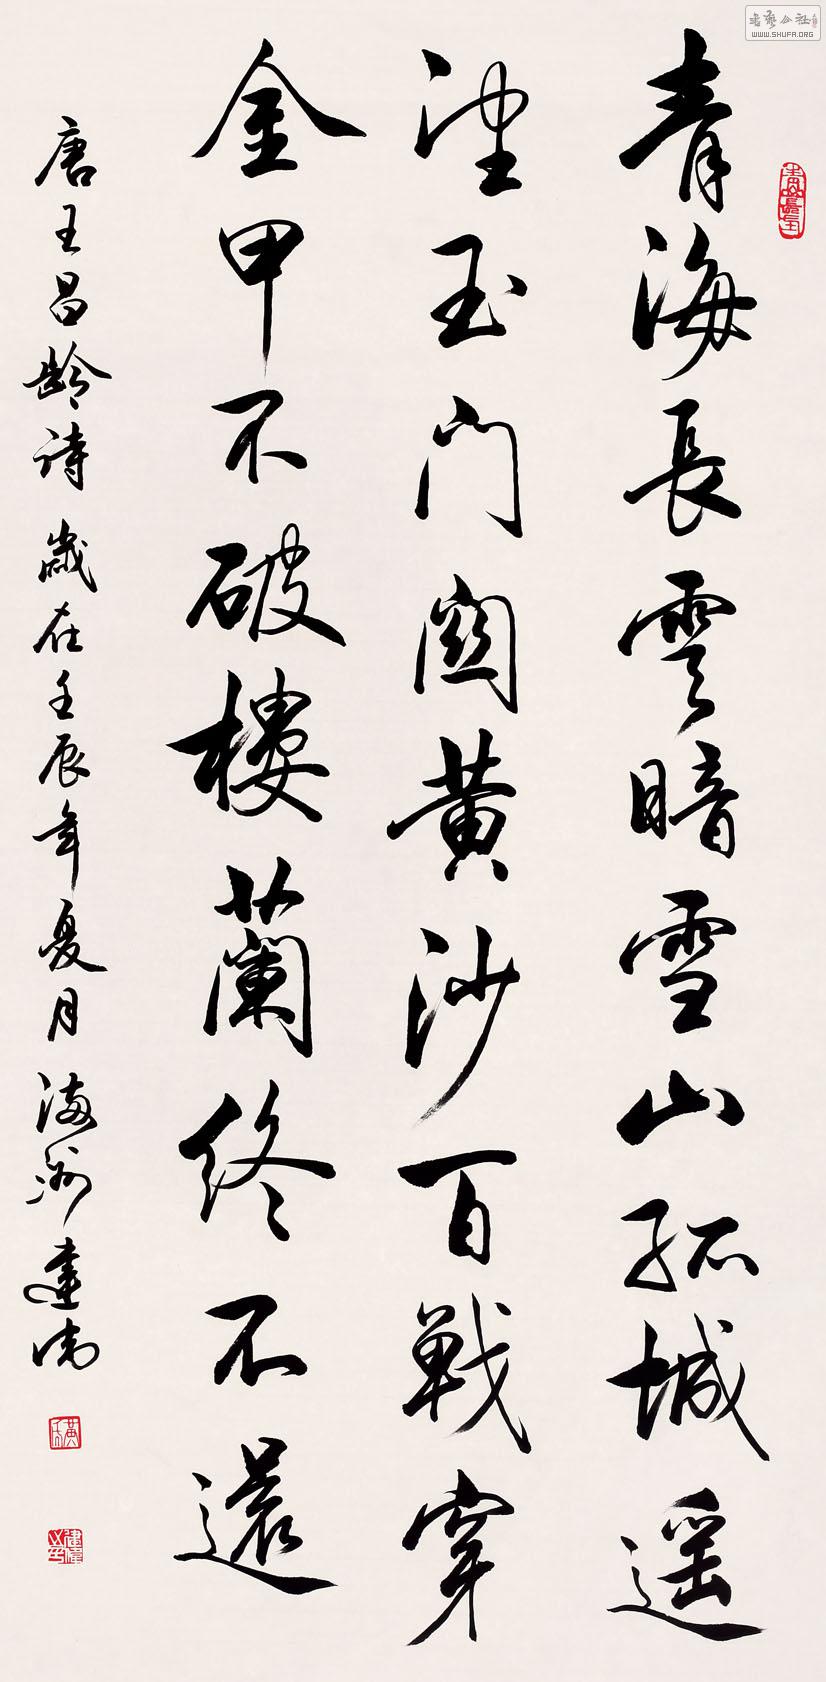 書藝公社
WWW.SHUFA.ORG
青海長雲暗雪山孤城遥
望玉門關黄沙百戰穿
金甲不破樓蘭終不還
唐王昌齡詩 歲在壬辰年夏月 海州建偉